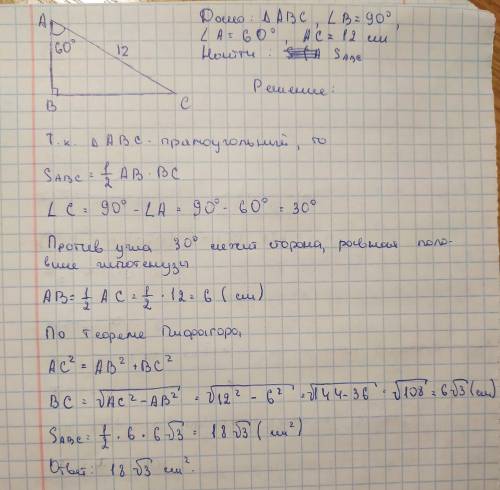 A
60°
12
B
C
Дано: △ABC, ∠B=90°,
∠A=60°, AC=12 см
Найти: S ABC
Решение:
Т.к. △ABC - прямоугольный, то
S ABC = 1/2 AB · BC
∠C = 90° - ∠A = 90° - 60° = 30°
Против угла 30° лежит сторона, равная поло-
вине гипотенузы
AB = 1/2 AC = 1/2 · 12 = 6 (см)
По теореме Пифагора,
AC² = AB² + BC²
BC = √AC² - AB² = √12² - 6² = √144 - 36 = √108 = 6√3 (см)
S ABC = 1/2 · 6 · 6√3 = 18√3 (см²)
Ответ: 18√3 см².